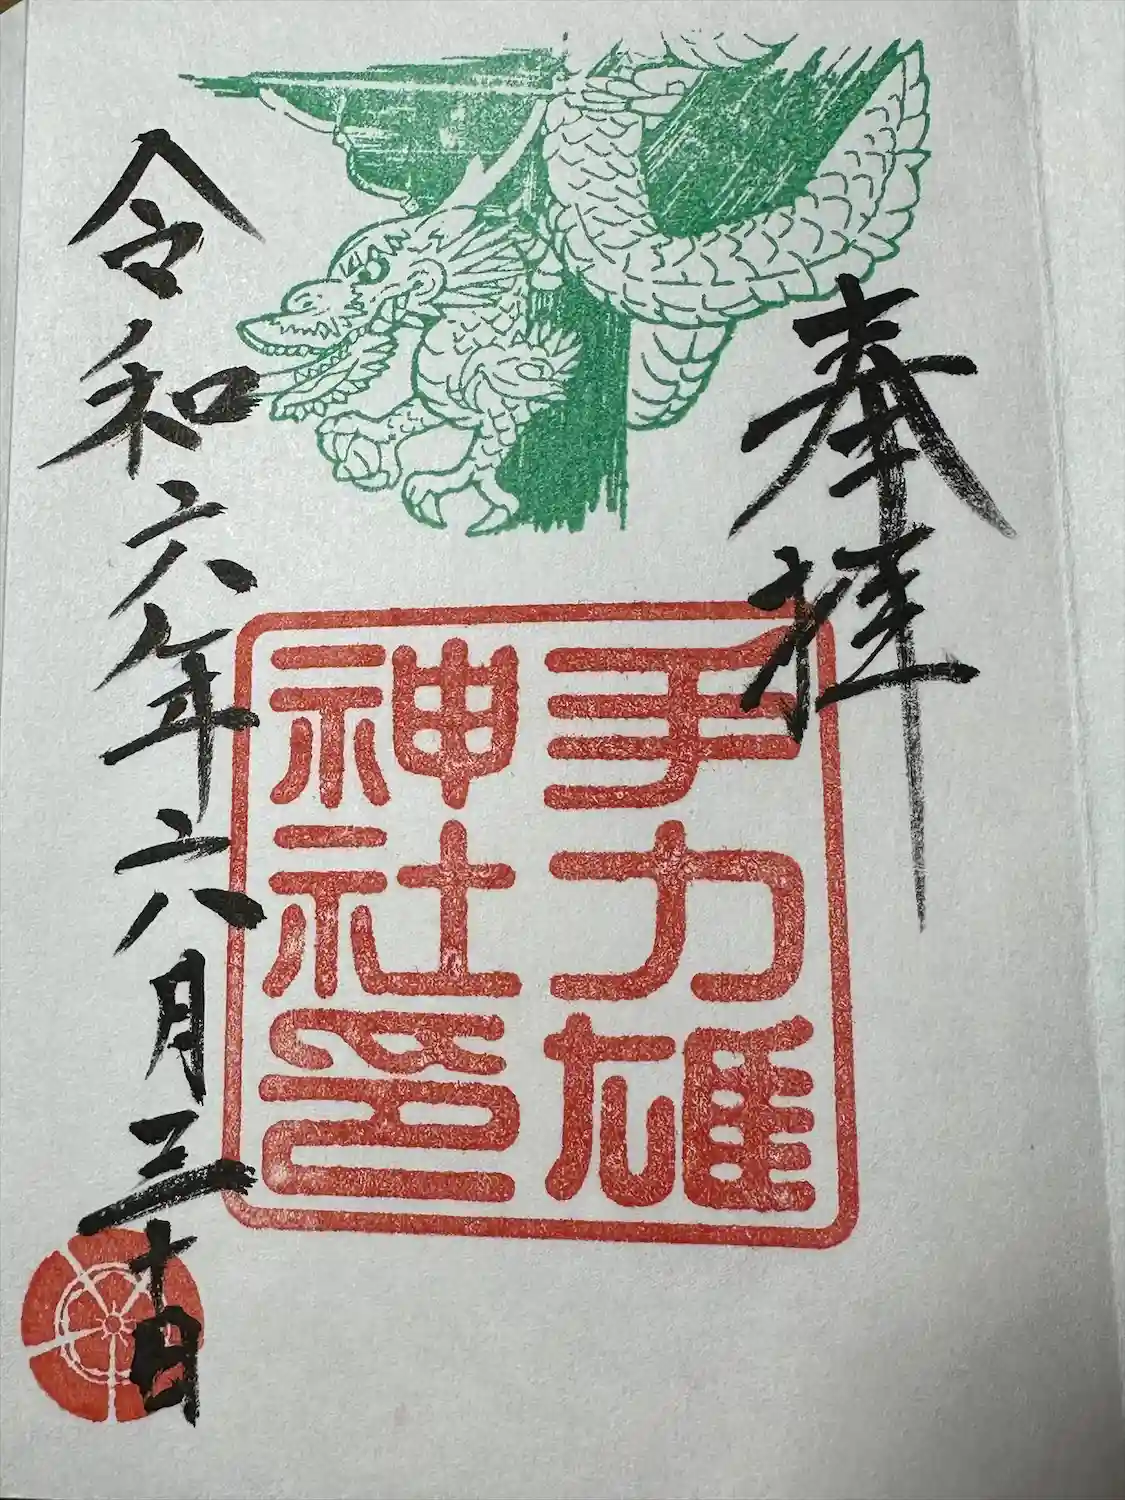 奉拝
手力雄
神社印
令和六年六月三十日